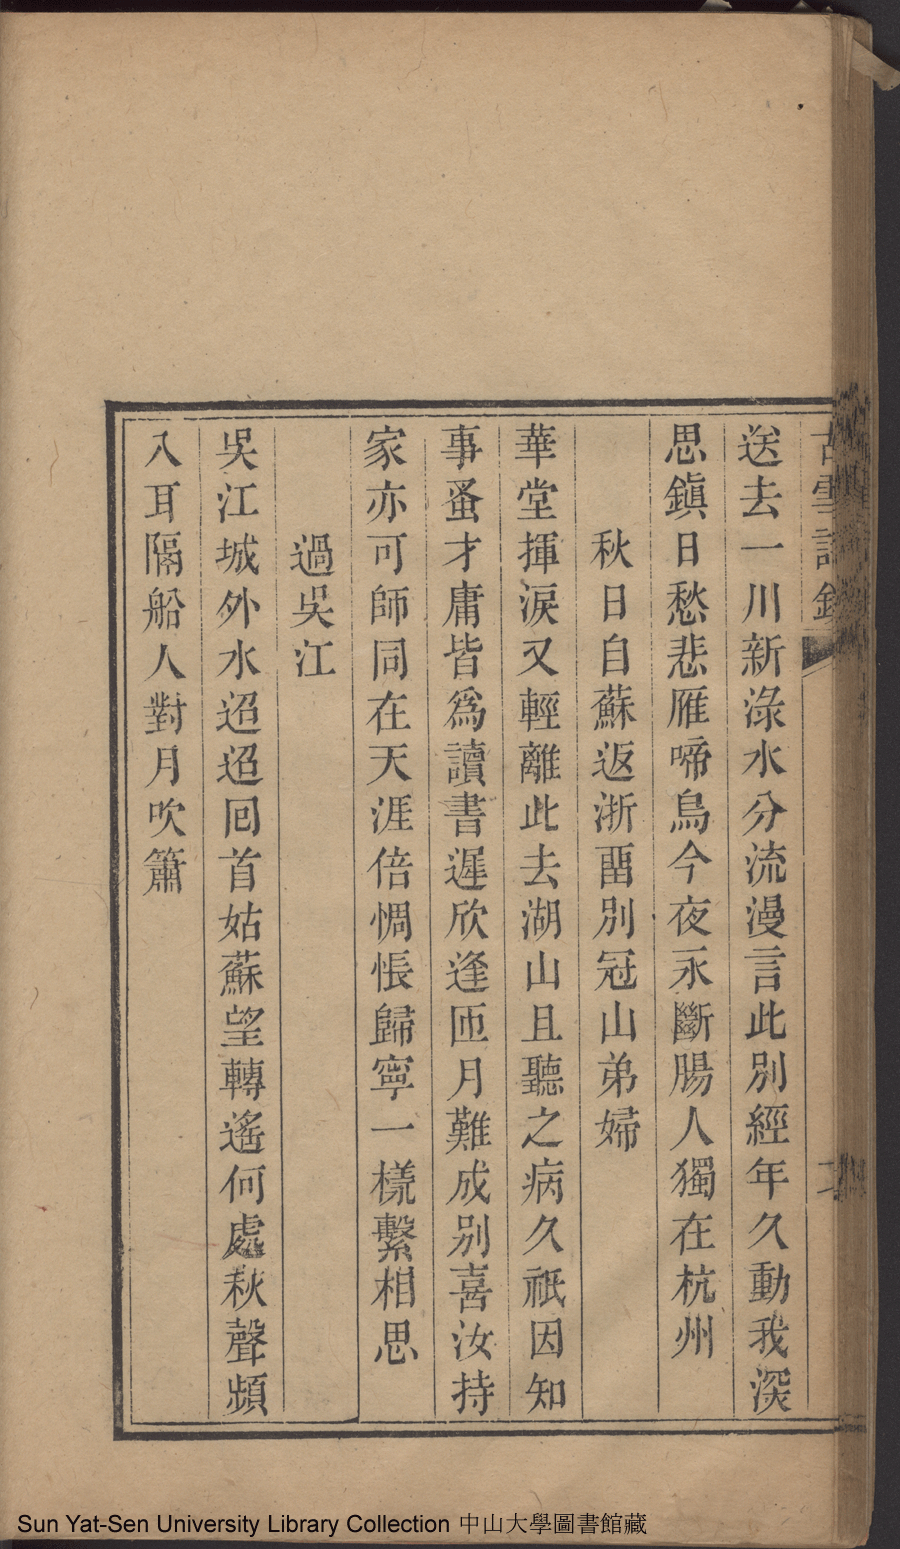 送去一川新淥水分流漫言此別經年久動我深
思鎭日愁悲雁啼烏今夜永斷腸人獨在杭州
秋日自蘇返浙畱別冠山弟婦
華堂揮淚又輕離此去湖山且聽之病久祇因知
事蚤才庸皆爲讀書遲欣逢匝月難成别喜汝持
家亦可師同在天涯倍惆悵歸寧一樣繫相思
過吳江
吳江城外水迢迢囘首姑蘇望轉遙何處秋聲頻
入耳隔船人對月吹簫
Sun Yat-Sen University Library Collection 中山大學圖書館藏